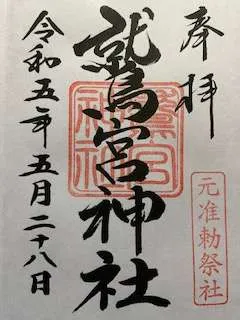 奉拝
元准勅祭社
鷲宮神社
令和五年五月二十八日